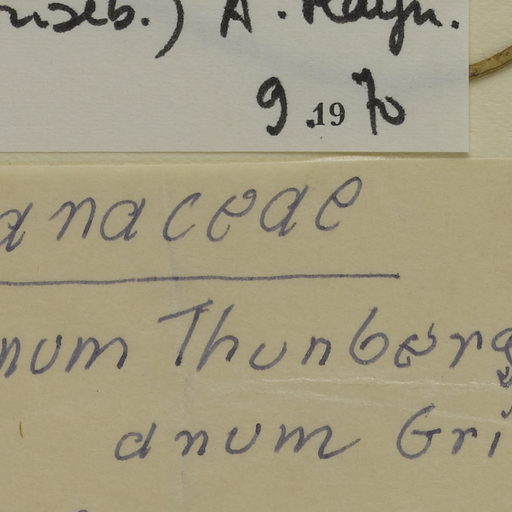 riseb.) A. Raym.
9.1970
anaceae
num Thunberg
anum Gri